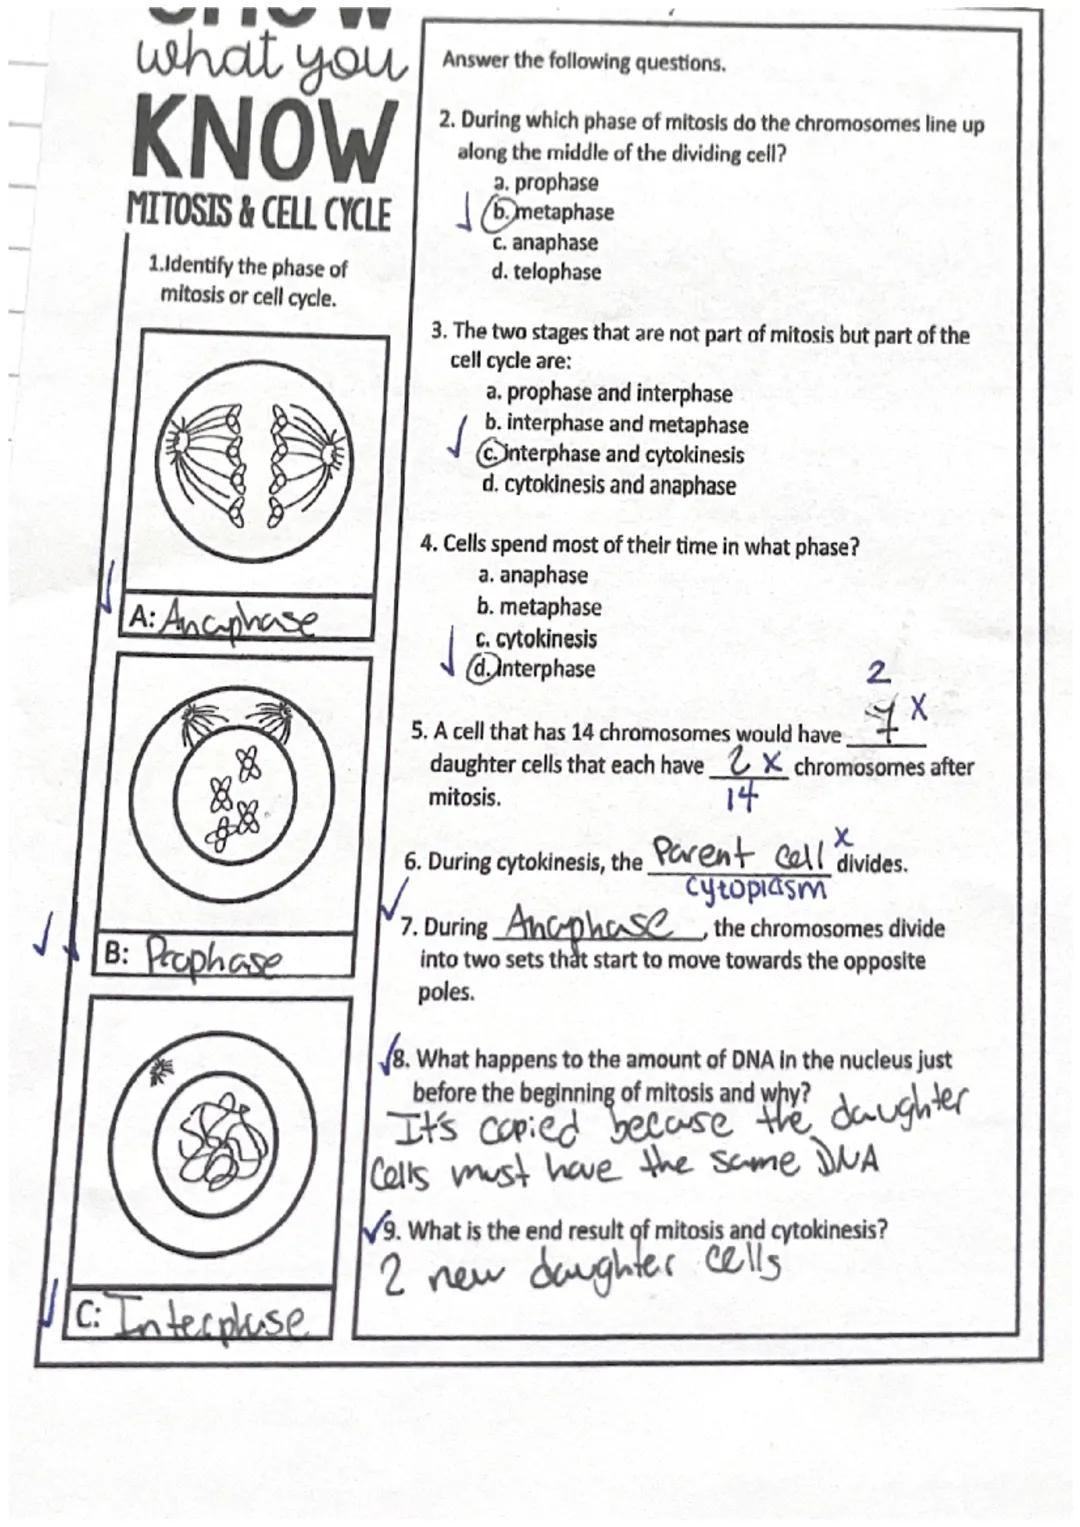 what you
KNOW
MITOSIS & CELL CYCLE
1.Identify the phase of
mitosis or cell cycle.
A: Anaphase
B: Prophase
C: Interphase
Answer the following questions.
2. During which phase of mitosis do the chromosomes line up
along the middle of the dividing cell?
a. prophase
b. metaphase
c. anaphase
d. telophase
3. The two stages that are not part of mitosis but part of the
cell cycle are:
a. prophase and interphase
b. interphase and metaphase
c. interphase and cytokinesis
d. cytokinesis and anaphase
4. Cells spend most of their time in what phase?
a. anaphase
b. metaphase
c. cytokinesis
d. interphase
2
5. A cell that has 14 chromosomes would have 7 x
daughter cells that each have 2 x chromosomes after
mitosis. 14
6. During cytokinesis, the Parent cell x divides.
cytoplasm
7. During Anaphase, the chromosomes divide
into two sets that start to move towards the opposite
poles.
8. What happens to the amount of DNA in the nucleus just
before the beginning of mitosis and why?
It's copied because the daughter
Cells must have the same DNA
9. What is the end result of mitosis and cytokinesis?
2 new daughter cells